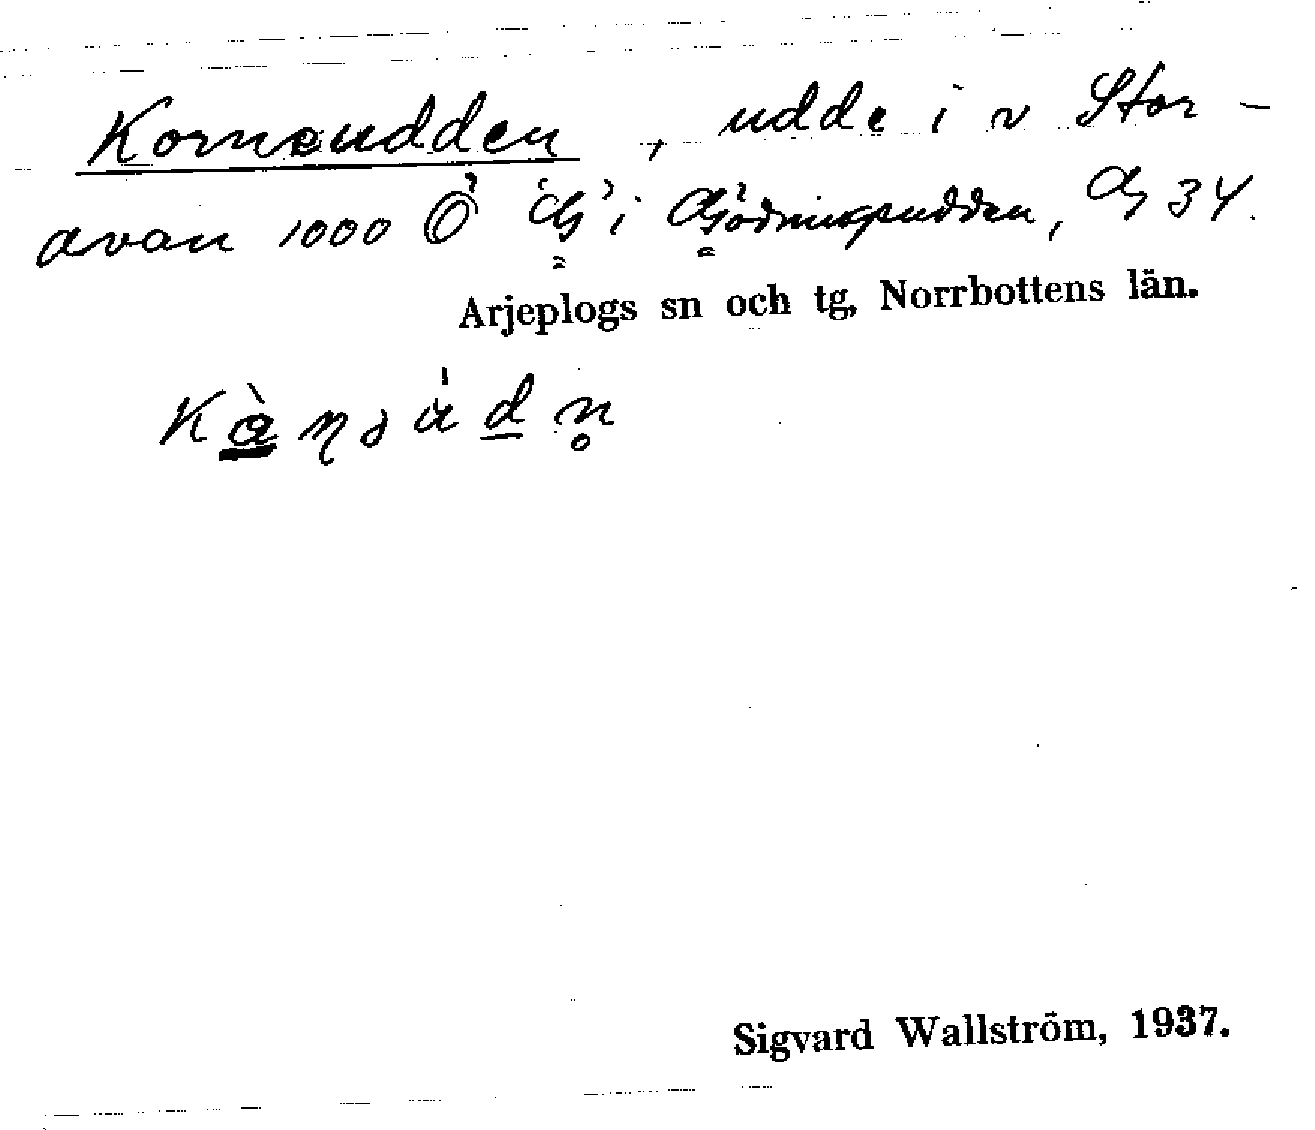 Korneudden, udde i v Stor-
avan 1000 Ö 'G' i Gödningsudden, G 34.
Arjeplogs sn och tg, Norrbottens län.
Sigvard Wallström, 1937.